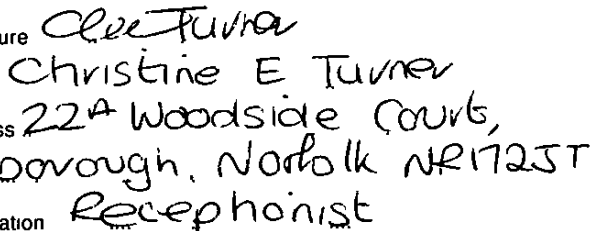 ure Clee Turner
Christine E Turner
ss 22A Woodside Court,
borough, Norfolk NR17 2JT
ation Receptionist